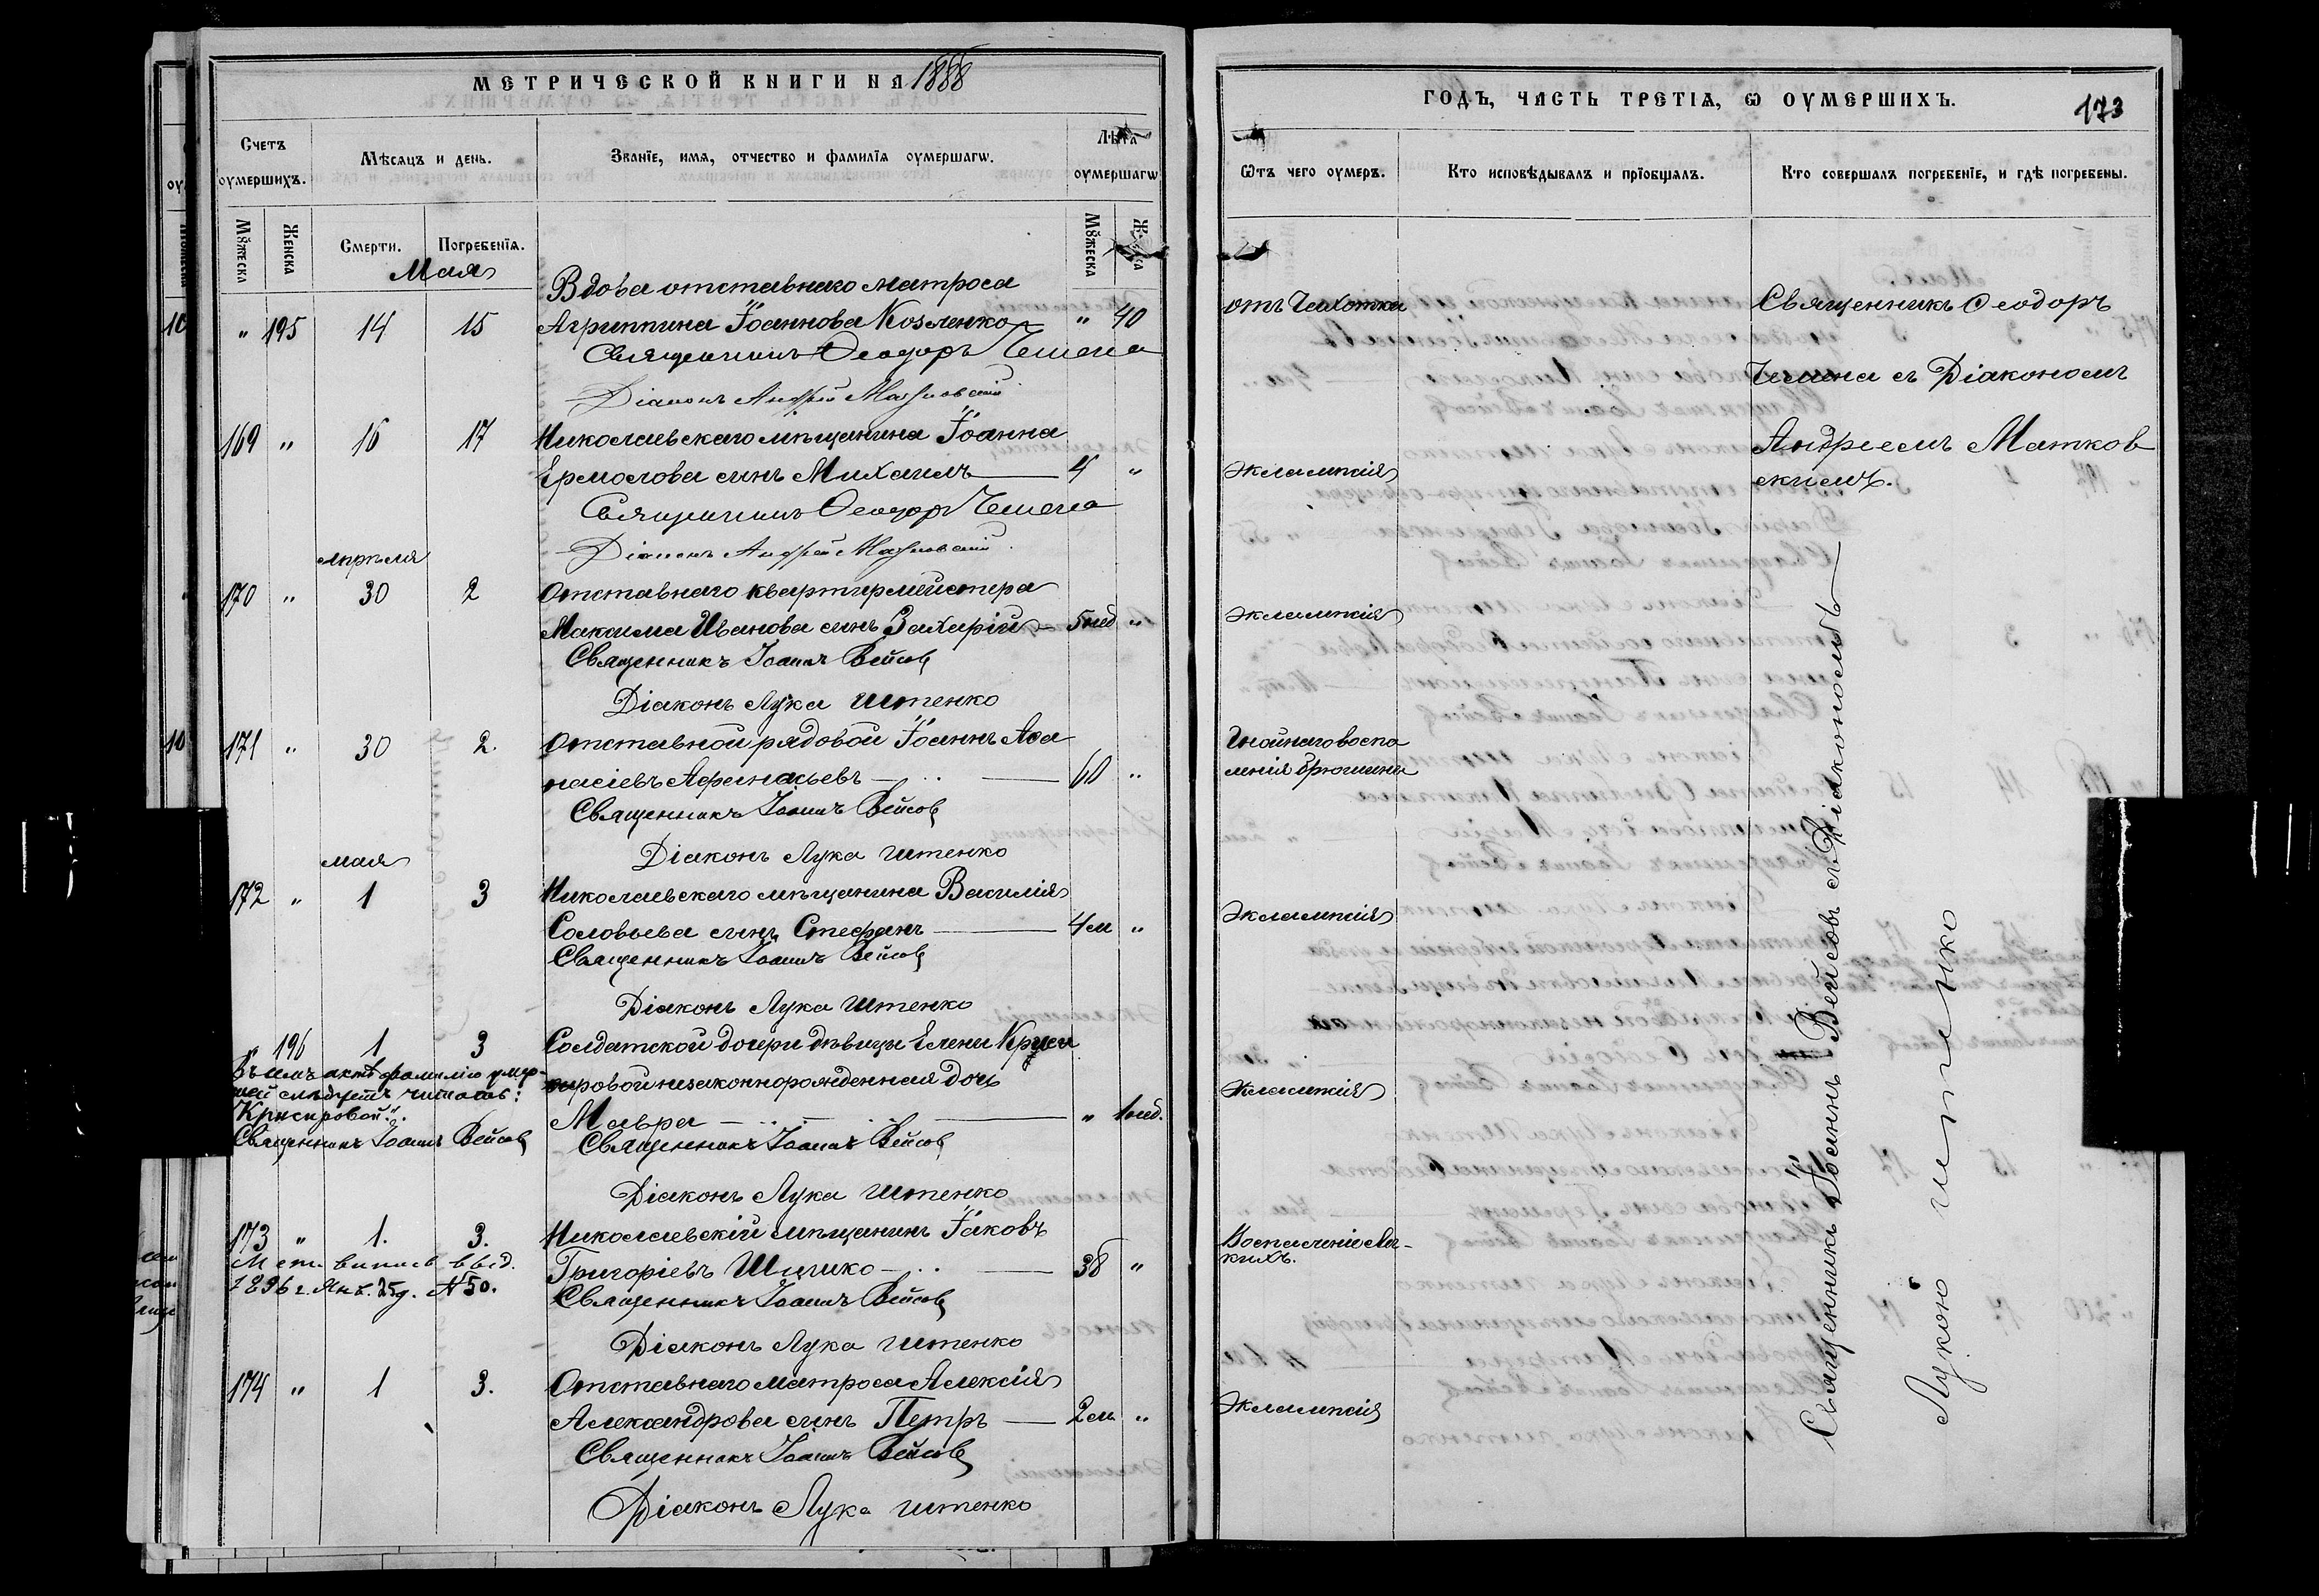 МЕТРИЧЕСКОЙ КНИГИ НА 1888
Счетъ оумершихъ.
Мѣсяцъ и день.
Званїе, имя, отчество и фамилїя оумершагѡ.
Лѣта оумершагѡ
Мꙋжеска
Женска
Смерти.
Погребенїя.
Мꙋжеска
Мая
Вдова отставнаго матроса
" 195 14 15 Агриппина Іоаннова Козленко " 40
Священникъ Ѳеодоръ Чемена
Діаконъ Андрей Матковскій
169 " 16 17 Николаевскаго мѣщанина Іоанна
Ермолова сынъ Михаилъ 4 "
Священникъ Ѳеодоръ Чемена
Діаконъ Андрей Матковскій
апрѣля
170 " 30 2 Отставнаго квартирмейстера
Максима Иванова сынъ Захарій 5 нед "
Священникъ Іоаннъ Вейсовъ
Діаконъ Лука Штенко
171 " 30 2. Отставной рядовой Іоаннъ Аѳа
насіевъ Афанасьевъ 60 "
Священникъ Іоаннъ Вейсовъ
Діаконъ Лука Штенко
мая
172 " 1 3 Николаевскаго мѣщанина Василія
Соловьева сынъ Стефанъ 4 м "
Священникъ Іоаннъ Вейсовъ
Діаконъ Лука Штенко
" 196 1 3 Солдатской дочери дѣвицы Елены
ровой незаконнорожденная дочь
Мавра " 1 нед.
Священникъ Іоаннъ Вейсовъ
Діаконъ Лука Штенко
актѣ фамилію
слѣдуетъ читать:
"Крисировой".
Священникъ Іоаннъ Вейсовъ
173 " 1. 3. Николаевскій мѣщанинъ Іаковъ
Григоріевъ 38 "
Священникъ Іоаннъ Вейсовъ
Діаконъ Лука Штенко
1896 г. Янв. 25 д. №50.
174 " 1 3. Отставнаго матроса Алексія
Александрова сынъ Петръ 2 м "
Священникъ Іоаннъ Вейсовъ
Діаконъ Лука Штенко
ГОДЪ, ЧАСТЬ ТРЕТІѦ, Ѡ ОУМЕРШИХЪ.
173
Ѿтъ чего оумеръ.
Кто исповѣдывалъ и прїобщалъ.
Кто совершалъ погребенїе, и гдѣ погребены.
отъ Чахотки
Священникъ Ѳеодоръ
Чемена съ Діакономъ
Андреемъ Матков
скимъ.
Эклампсія
Эклампсія
Гнойнаго воспа
ленія брюшины
Эклампсія
Эклампсія
Воспаленіе Лег-
кихъ.
Эклампсія
Священникъ Іоаннъ Вейсовъ съ Діакономъ
Лукою Штенко